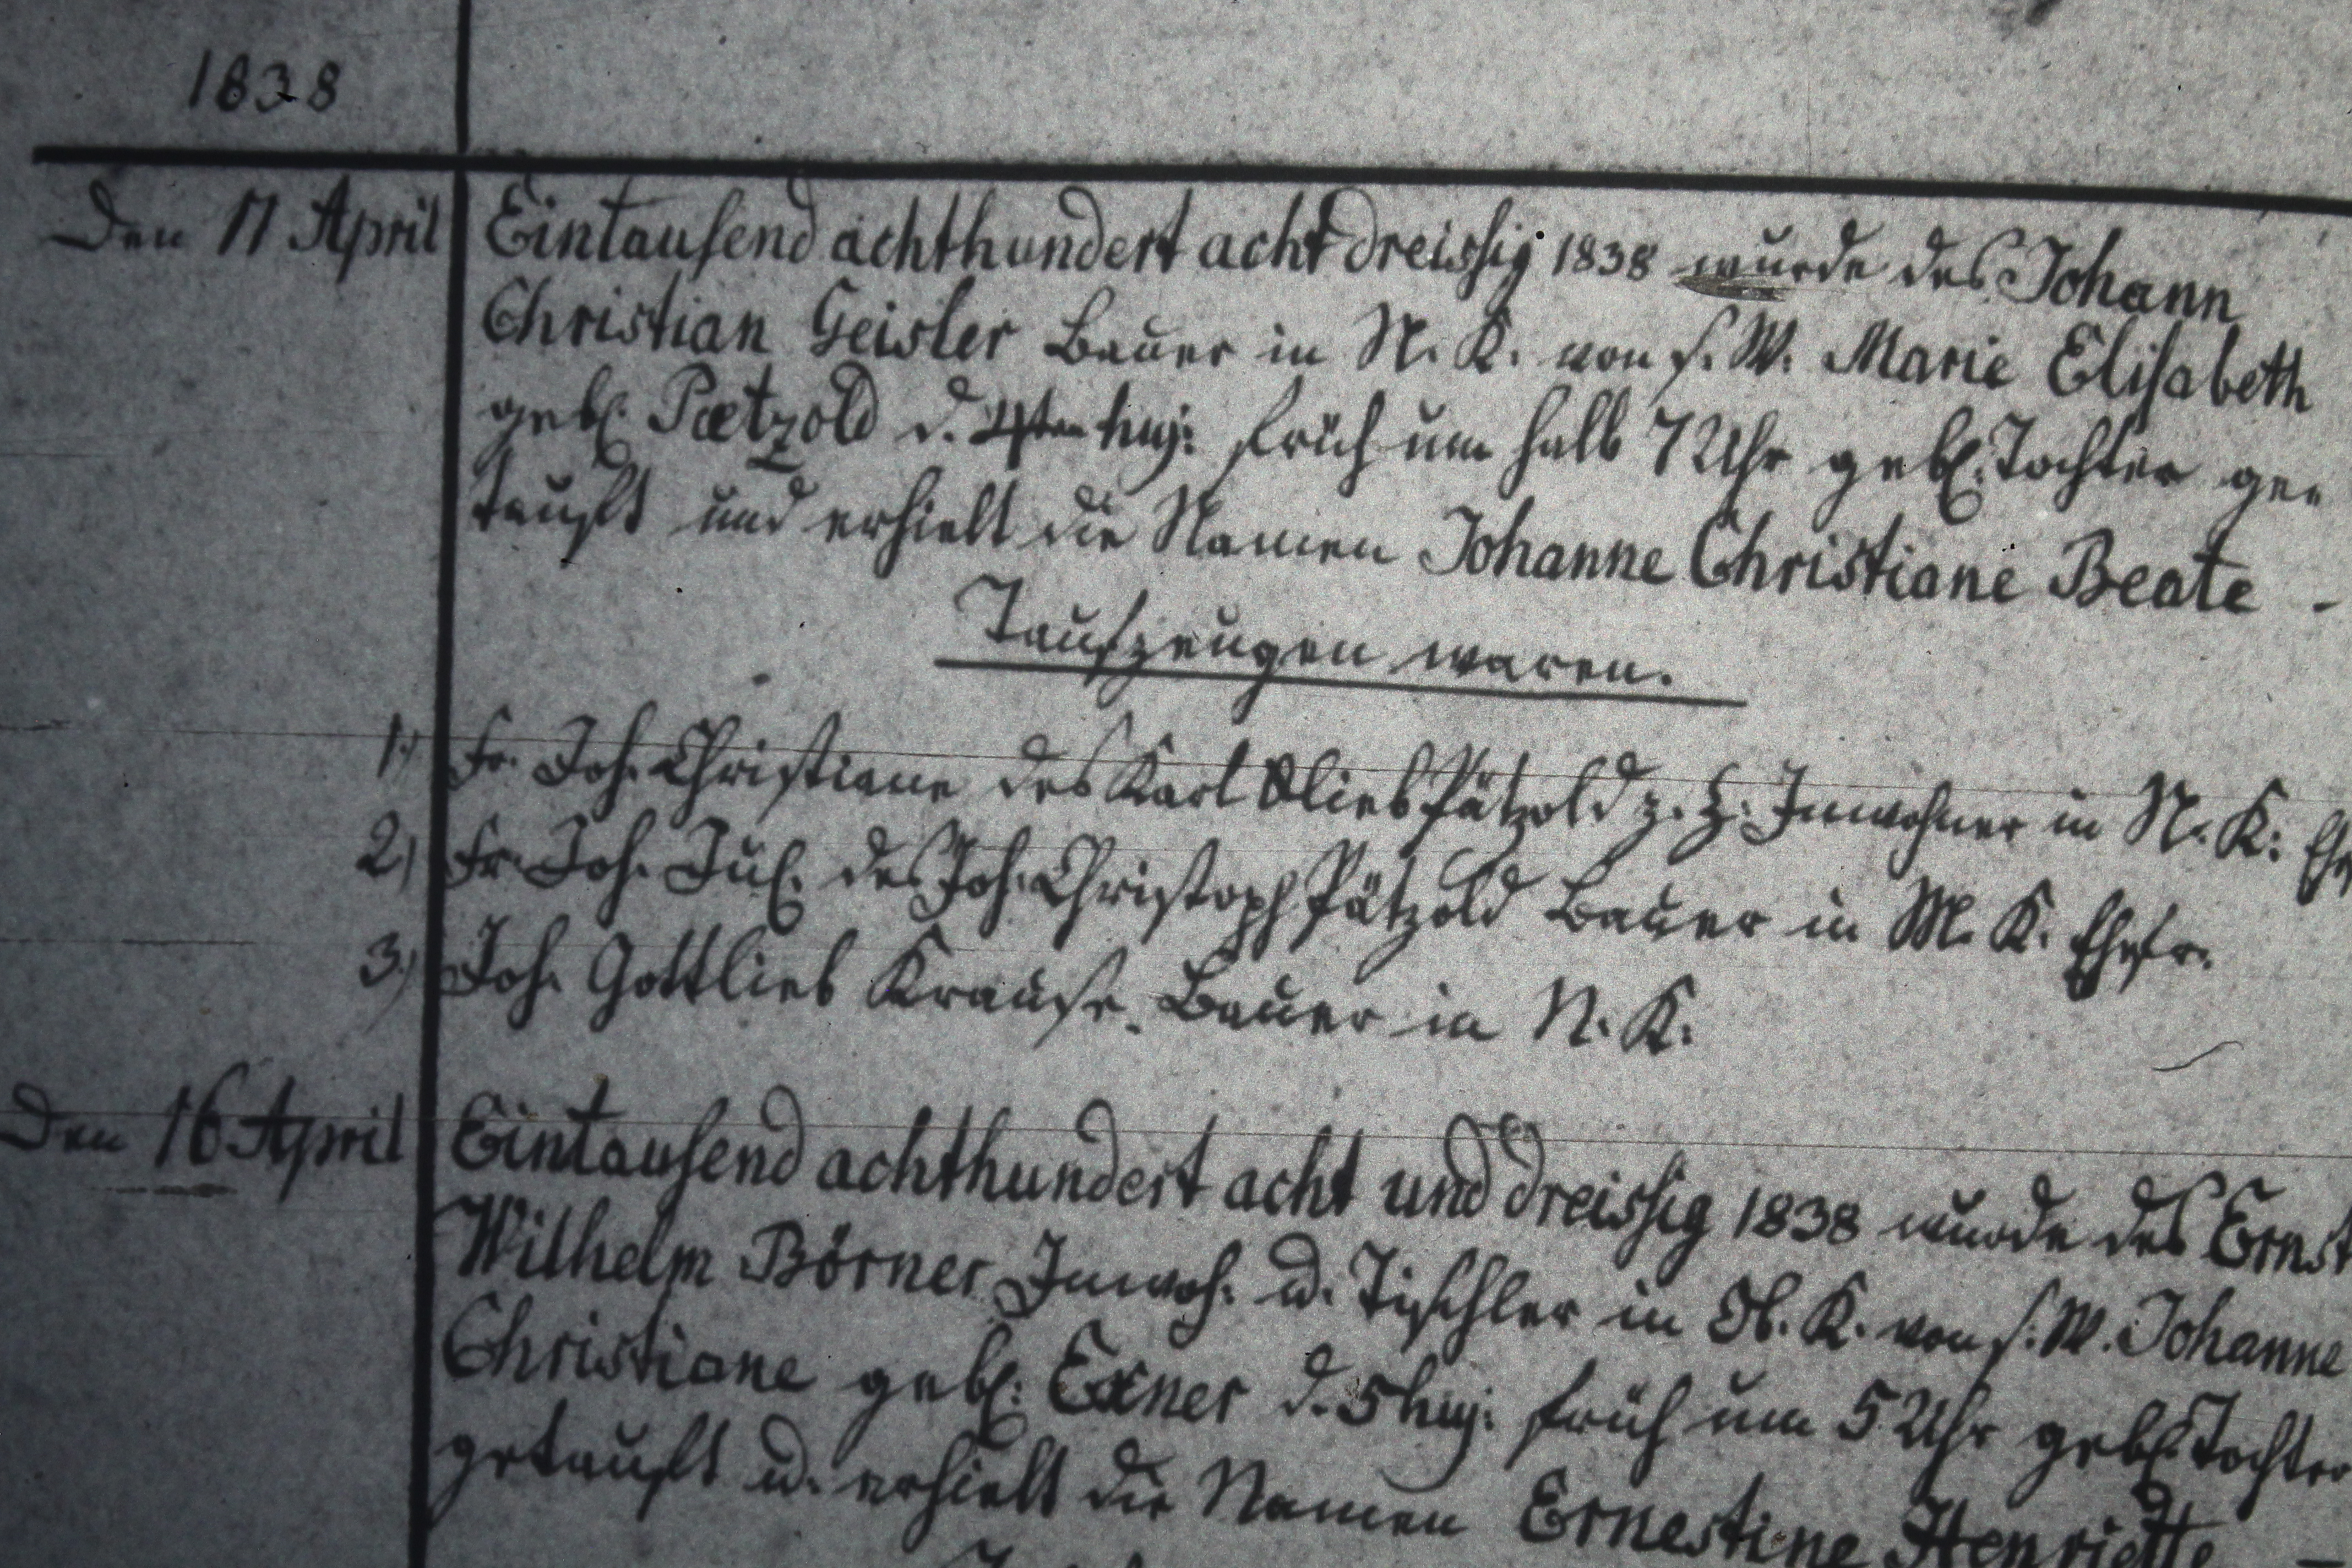 1838
Den 11 April Eintausend achthundert acht dreissig 1838 wurde des Johann
Christian Geisler Bauer in N. K. von s. W. Marie Elisabeth
geb. Paetzold d. 4ten huj: früh um halb 7 Uhr geb. Tochter ge=
tauft und erhielt die Namen Johanne Christiane Beate -
Taufzeugen waren.
1.) Fr. Joh. Christiane des Karl Glieb Pätzold z. Z. Inwohner in N. K. Ehe
2.) Fr. Joh. Jul. des Joh. Christoph Pätzold Bauer in M. K. Ehefr.
3.) Joh. Gottlieb Krause. Bauer in N. K.
Den 16 April Eintausend achthundert acht und dreissig 1838 wurde des Ernst
Wilhelm Börner Inwoh. u. Tischler in Ob. K. von s. W. Johanne
Christiane geb: Exner d. 5 huj: früh um 5 Uhr geb. Tochter
getauft u. erhielt die Namen Ernestine Henriette